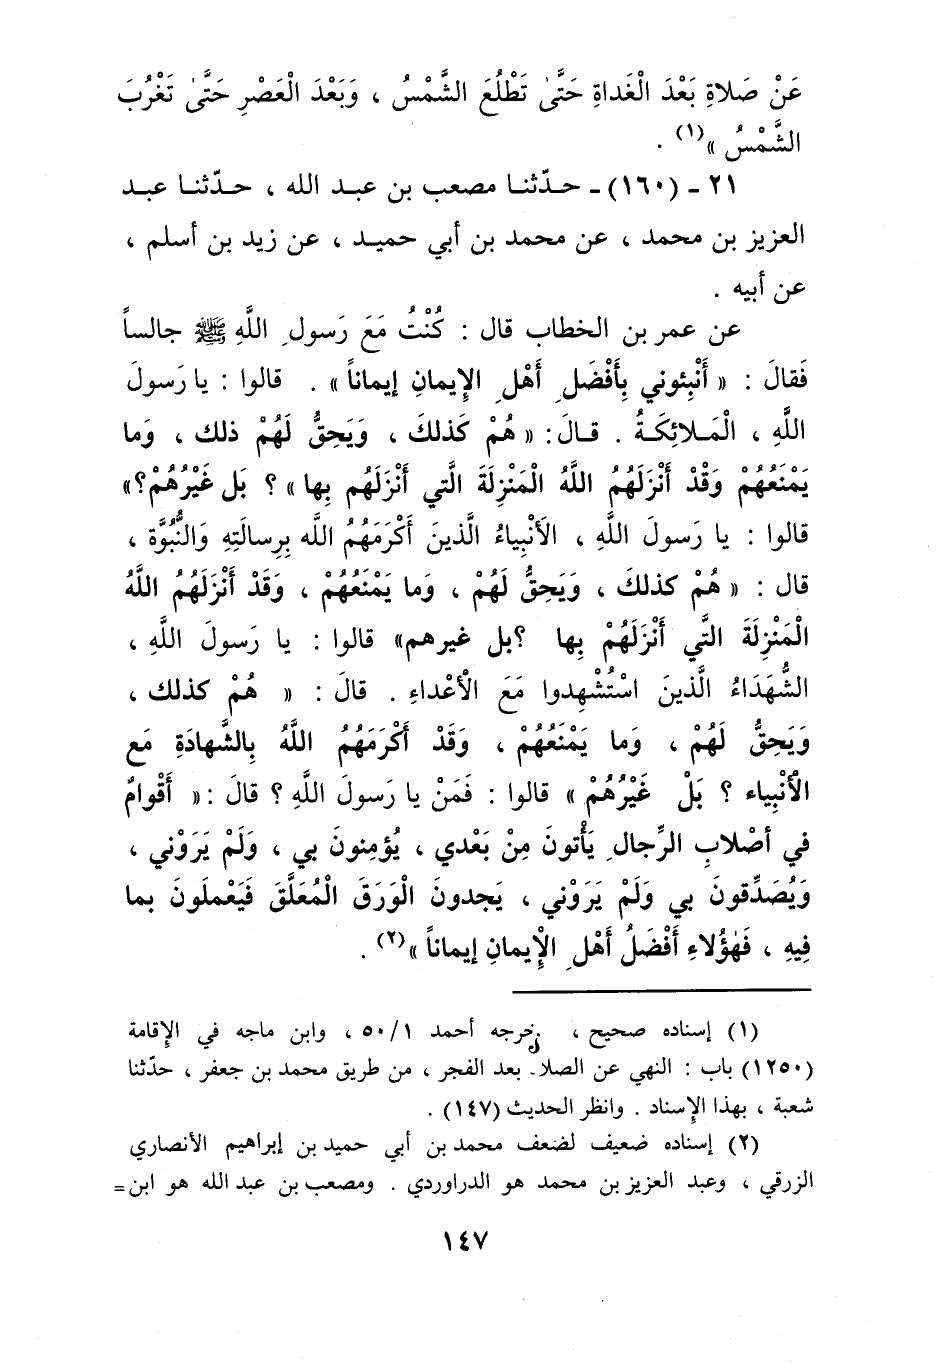 عَنْ صَلاةِ بَعْدَ الْغَداةِ حَتَّىٰ تَطْلُعَ الشَّمْسُ ، وَبَعْدَ الْعَصْرِ حَتَّىٰ تَغْرُبَ
الشَّمْسُ »(١) .
٢١ ـ (١٦٠) ـ حـدّثنـا مصعب بن عبـد الله ، حـدّثنـا عبـد
العزيز بن محمد ، عن محمد بن أبي حميـد ، عن زيد بن أسلم ،
عن أبيه .
عن عمر بن الخطاب قال : كُنْتُ مَعَ رَسولِ اللَّهِ ﷺ جالساً
فَقالَ : « أَنْبِئوني بِأَفْضَلِ أَهْلِ الإِيمانِ إيماناً » . قالوا : يا رَسولَ
اللَّهِ ، الْمَـلائِكَـةُ . قـالَ: « هُمْ كَذلكَ ، وَيَحِقُّ لَهُمْ ذلك ، وَما
يَمْنَعُهُمْ وَقْدْ أَنْزَلَهُمُ اللَّهُ الْمَنْزِلَةَ الَّتي أَنْزَلَهُم بِها » ؟ بَل غَيْرُهُمْ؟»
قالوا : يا رَسولَ اللَّهِ ، الأَنْبِياءُ الَّذينَ أَكْرَمَهُمُ الله بِرِسالَتِهِ وَالنُّبُوَّة ،
قال : « هُمْ كذلكَ ، وَيَحِقُّ لَهُمْ ، وَما يَمْنَعُهُمْ ، وَقَدْ أَنْزَلَهُمُ اللَّهُ
الْمَنْزِلَةَ التَّي أَنْزَلَهُمْ بِها ؟بل غيرهم» قالوا : يا رَسولَ اللَّهِ ،
الشُّهَدَاءُ الَّذينَ اسْتُشْهِدوا مَعَ الْأَعْداءِ . قالَ : « هُمْ كذلك ،
وَيَحِقُّ لَهُمْ ، وَما يَمْنَعُهُمْ ، وَقَدْ أَكْرَمَهُمُ اللَّهُ بِالشَّهادَةِ مَع
الْأَنْبِياء ؟ بَلْ غَيْرُهُمْ » قالوا : فَمَنْ يا رَسولَ اللَّهِ ؟ قالَ :« أَقْوامٌ
في أصْلابِ الرِّجالِ يَأْتونَ مِنْ بَعْدي ، يُؤمِنونَ بي ، وَلَمْ يَرَوْني ،
وَيُصَدِّقونَ بي وَلَمْ يَرَوْني ، يَجدونَ الْوَرَقَ الْمُعَلَّقَ فَيَعْملَونَ بما
فِيهِ ، فَهٰؤُلاءِ أَفْضَلُ أَهْلِ الْإِيمانِ إيماناً »(٢) .
(١) إسناده صحيح ، خرجه أحمد ١/ ٥٠ ، وابن ماجه في الإِقامة
(١٢٥٠) باب : النهي عن الصلا. بعد الفجر ، من طريق محمد بن جعفر ، حدّثنا
شعبة ، بهذا الإِسناد . وانظر الحديث (١٤٧) .
(٢) إسناده ضعيف لضعف محمد بن أبي حميد بن إبراهيم الأنصاري
الزرقي ، وعبد العزيز بن محمد هو الدراوردي . ومصعب بن عبد الله هو ابن =
١٤٧